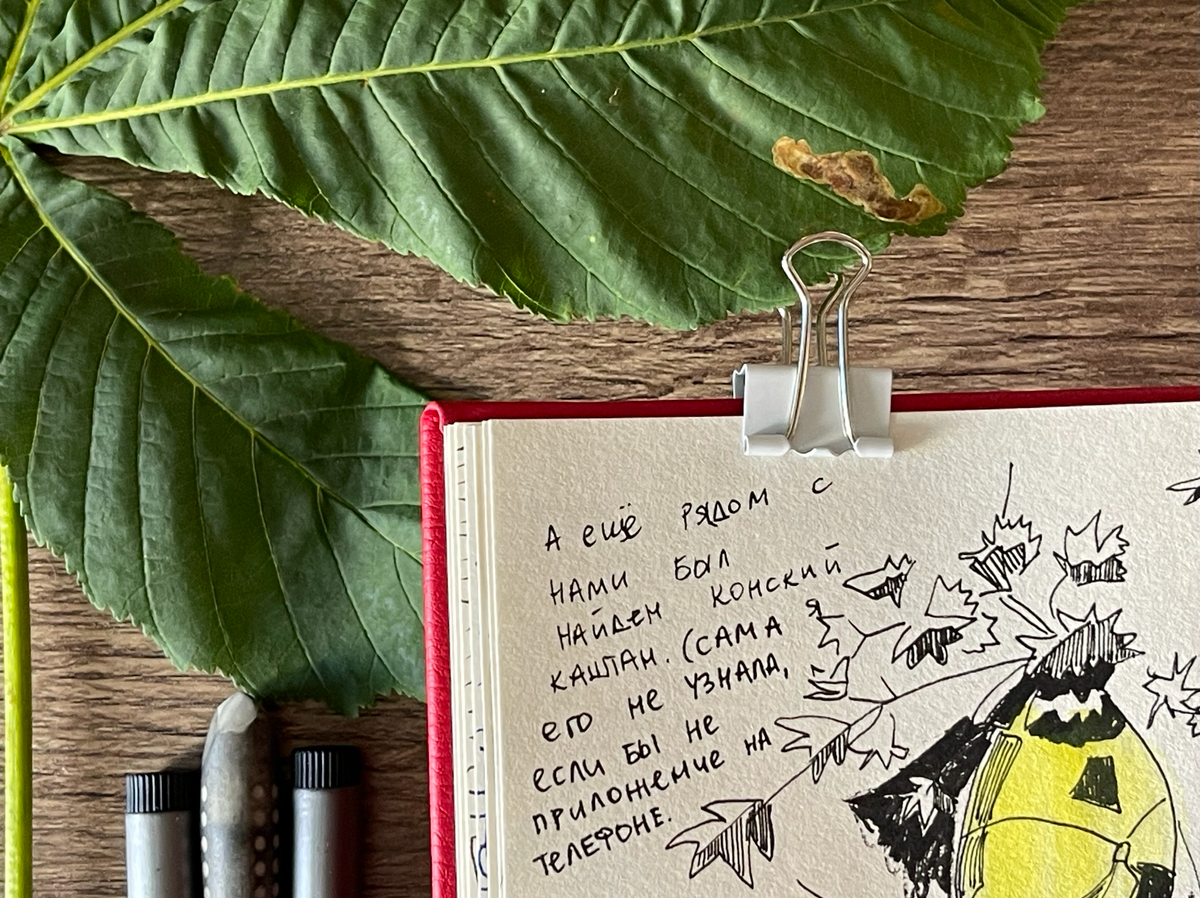 А ещё рядом с
нами был
найден конский
каштан. (Сама я
его не узнала,
если бы не
приложение на
телефоне.